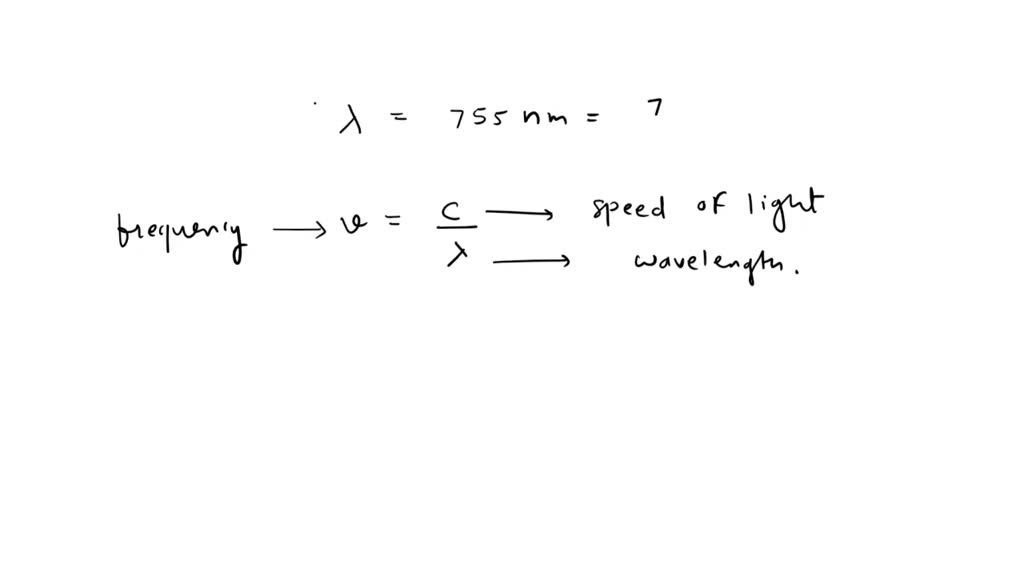 λ = 755 nm = 7
frequency → ν = C/λ → speed of light
→ wavelength.